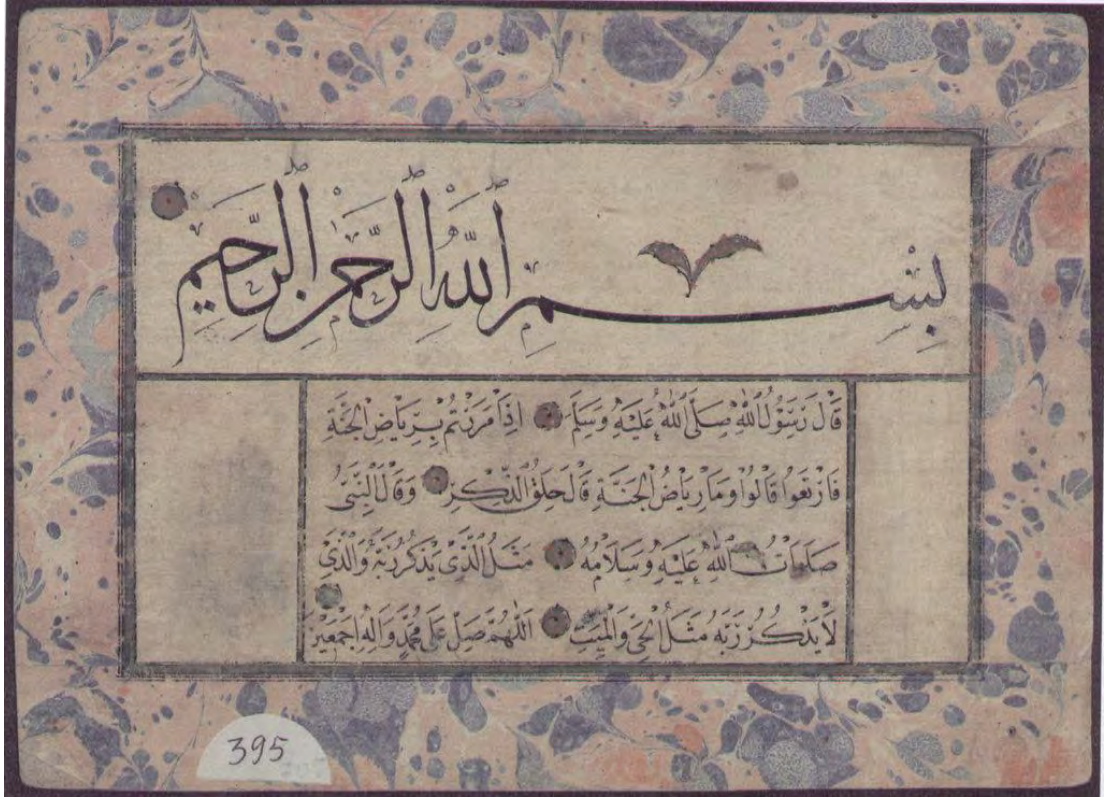 بِسْمِ اللَّهِ الرَّحْمٰنِ الرَّحِيمِ
قَالَ رَسُولُ اللَّهِ صَلَّى اللَّهُ عَلَيْهِ وَسَلَّمَ اِذَا مَرَرْتُمْ بِرِيَاضِ الْجَنَّةِ
فَارْتَعُوا قَالُوا وَمَا رِيَاضُ الْجَنَّةِ قَالَ حَلَقُ الذِّكْرِ وَقَالَ النَّبِىُّ
صَلَوَاتُ اللَّهِ عَلَيْهِ وَسَلَامُهُ مَثَلُ الَّذِى يَذْكُرُ رَبَّهُ وَالَّذِى
لَا يَذْكُرُ رَبَّهُ مَثَلُ الْحَىِّ وَالْمَيِّتِ اَللّٰهُمَّ صَلِّ عَلَى مُحَمَّدٍ وَاٰلِهِ اَجْمَعِينَ
395